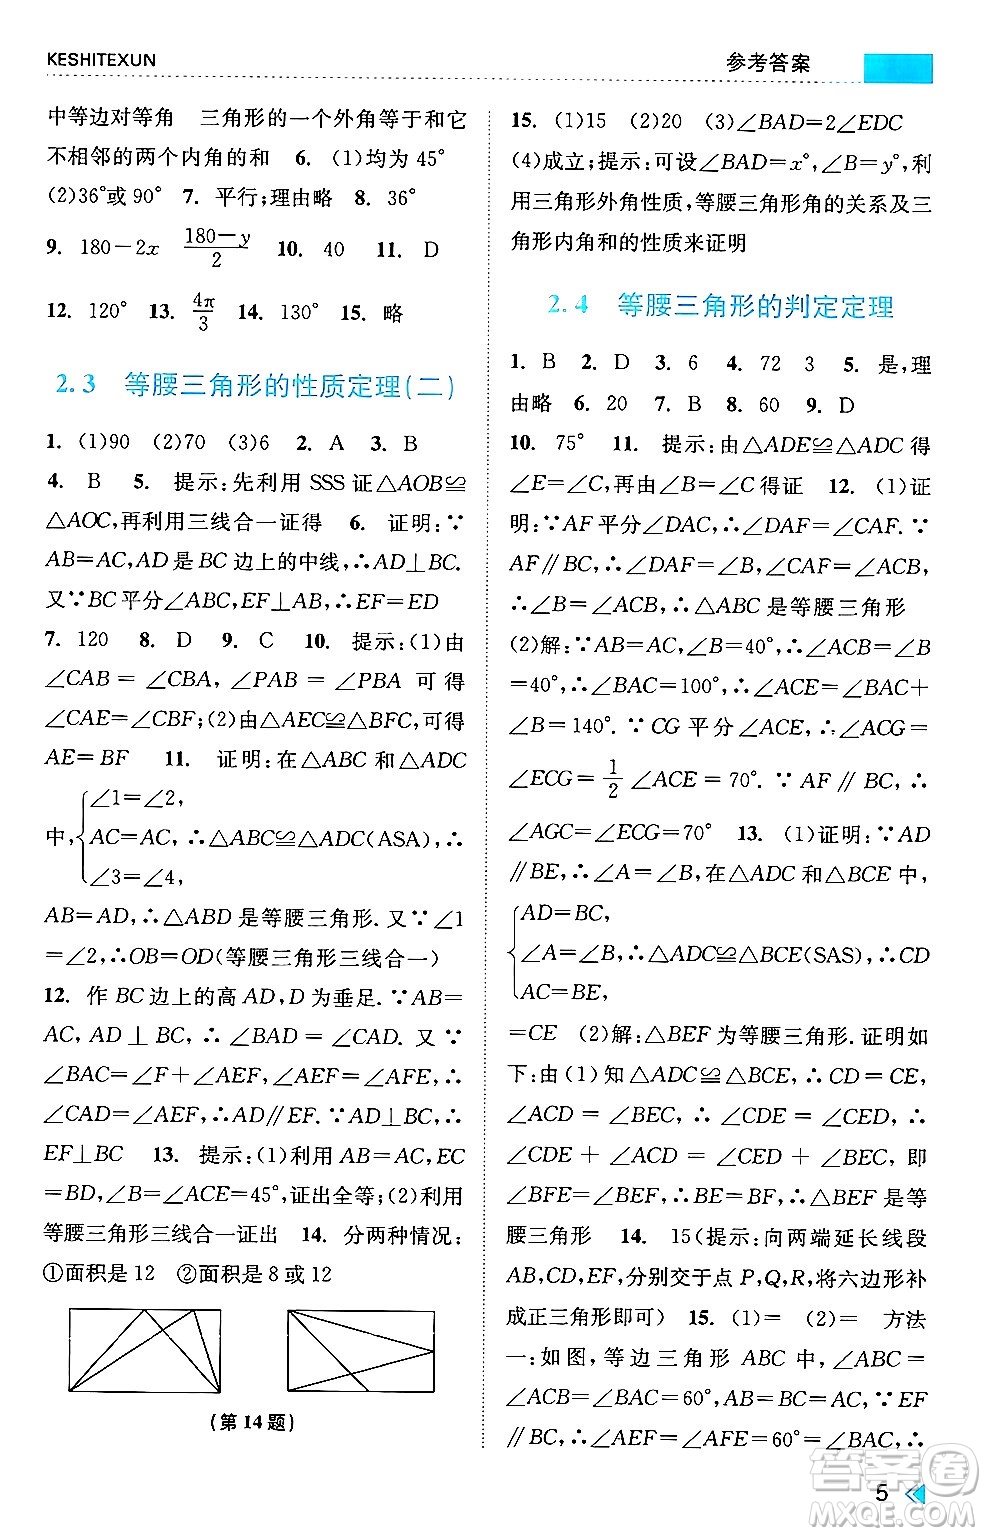 KESHITEXUN
参考答案
中等边对等角 三角形的一个外角等于和它
不相邻的两个内角的和 6. (1)均为45°
(2)36°或90° 7. 平行;理由略 8. 36°
9. 180-2x (180-y)/2 10. 40 11. D
12. 120° 13. 4π/3 14. 130° 15. 略
2.3 等腰三角形的性质定理(二)
1. (1)90 (2)70 (3)6 2. A 3. B
4. B 5. 提示:先利用SSS证△AOB≌
△AOC,再利用三线合一证得 6. 证明:∵
AB=AC,AD是BC边上的中线,∴AD⊥BC.
又∵BC平分∠ABC,EF⊥AB,∴EF=ED
7. 120 8. D 9. C 10. 提示:(1)由
∠CAB=∠CBA,∠PAB=∠PBA 可得
∠CAE=∠CBF;(2)由△AEC≌△BFC,可得
AE=BF 11. 证明:在△ABC和△ADC
∠1=∠2,
中,{AC=AC, ∴△ABC≌△ADC(ASA),∴
∠3=∠4,
AB=AD,∴△ABD是等腰三角形.又∵∠1
=∠2,∴OB=OD(等腰三角形三线合一)
12. 作BC边上的高AD,D为垂足.∵AB=
AC,AD⊥BC,∴∠BAD=∠CAD.又∵
∠BAC=∠F+∠AEF,∠AEF=∠AFE,∴
∠CAD=∠AEF,∴AD∥EF.∵AD⊥BC,∴
EF⊥BC 13. 提示:(1)利用AB=AC,EC
=BD,∠B=∠ACE=45°,证出全等;(2)利用
等腰三角形三线合一证出 14. 分两种情况:
①面积是12 ②面积是8或12
(第14题)
15. (1)15 (2)20 (3)∠BAD=2∠EDC
(4)成立;提示:可设∠BAD=x°,∠B=y°,利
用三角形外角性质,等腰三角形角的关系及三
角形内角和的性质来证明
2.4 等腰三角形的判定定理
1. B 2. D 3. 6 4. 72 3 5. 是,理
由略 6. 20 7. B 8. 60 9. D
10. 75° 11. 提示:由△ADE≌△ADC得
∠E=∠C,再由∠B=∠C得证 12. (1)证
明:∵AF平分∠DAC,∴∠DAF=∠CAF.∵
AF∥BC,∴∠DAF=∠B,∠CAF=∠ACB,
∴∠B=∠ACB,∴△ABC是等腰三角形
(2)解:∵AB=AC,∠B=40°,∴∠ACB=∠B
=40°,∴∠BAC=100°,∴∠ACE=∠BAC+
∠B=140°.∵CG平分∠ACE,∴∠ACG=
∠ECG=1/2∠ACE=70°.∵AF∥BC,∴
∠AGC=∠ECG=70° 13. (1)证明:∵AD
∥BE,∴∠A=∠B,在△ADC和△BCE中,
AD=BC,
{∠A=∠B,∴△ADC≌△BCE(SAS),∴CD
AC=BE,
=CE (2)解:△BEF为等腰三角形.证明如
下:由(1)知△ADC≌△BCE,∴CD=CE,
∠ACD=∠BEC,∴∠CDE=∠CED.∴
∠CDE+∠ACD=∠CED+∠BEC,即
∠BFE=∠BEF,∴BE=BF,∴△BEF是等
腰三角形 14. 15(提示:向两端延长线段
AB,CD,EF,分别交于点P,Q,R,将六边形补
成正三角形即可) 15. (1)= (2)= 方法
一:如图,等边三角形ABC中,∠ABC=
∠ACB=∠BAC=60°,AB=BC=AC,∵EF
∥BC,∴∠AEF=∠AFE=60°=∠BAC,∴
5
答案卷
MXQE.COM